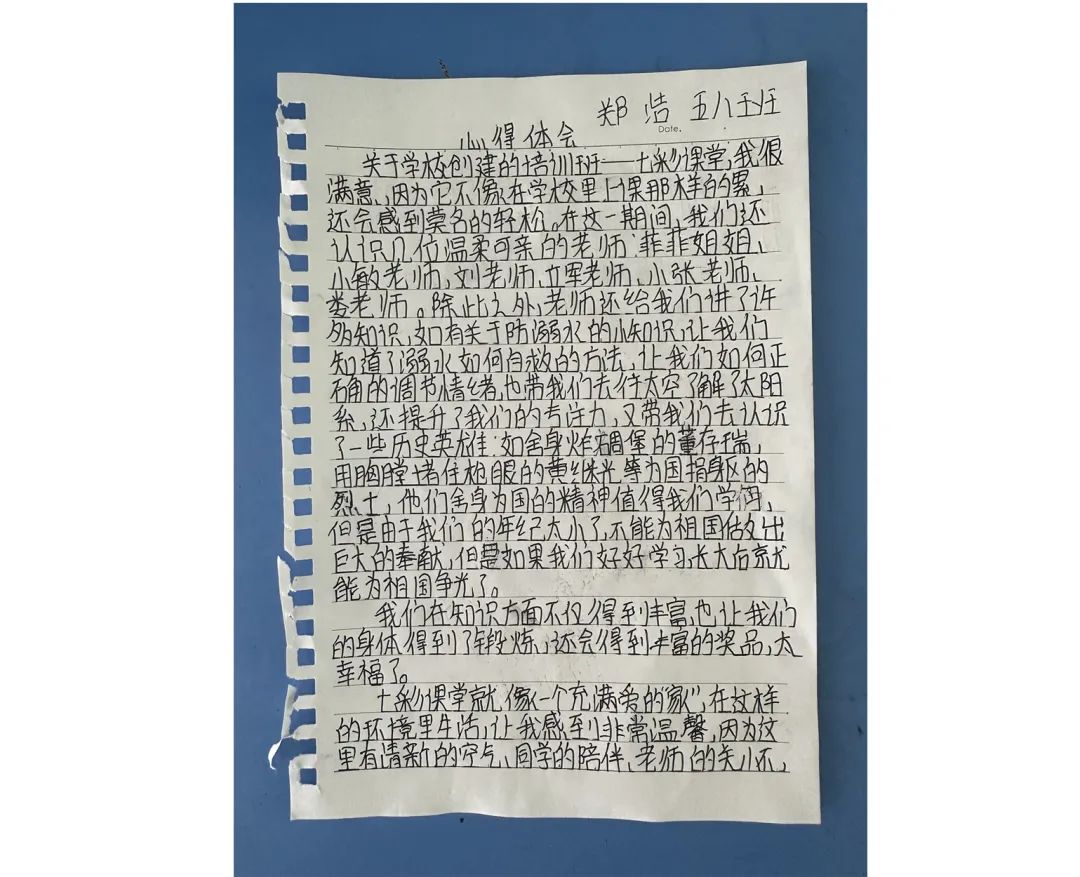 郑浩 五八班
Date.
心得体会
关于学校创建的培训班——七彩课堂,我很
满意,因为它不像在学校里上课那样的累,
还会感到莫名的轻松。在这一期间,我们还
认识几位温柔可亲的老师:菲菲姐姐、
小敏老师、刘老师、立军老师、小张老师、
娄老师。除此之外,老师还给我们讲了许
多知识,如有关于防溺水的小知识,让我们
知道了溺水如何自救的方法,让我们如何正
确的调节情绪,也带我们去往太空了解了太阳
系,还提升了我们的专注力,又带我们去认识
了一些历史英雄:如舍身炸碉堡的董存瑞,
用胸膛堵住枪眼的黄继光等为国捐身躯的
烈士,他们舍身为国的精神值得我们学习,
但是由于我们的年纪太小了,不能为祖国做出
巨大的奉献,但是如果我们好好学习,长大后就
能为祖国争光了。
我们在知识方面不仅得到丰富,也让我们
的身体得到了锻炼,还会得到丰富的奖品,太
幸福了。
七彩课堂就像一个充满爱的“家”,在这样
的环境里生活,让我感到非常温馨,因为这
里有清新的空气、同学的陪伴、老师的关怀,